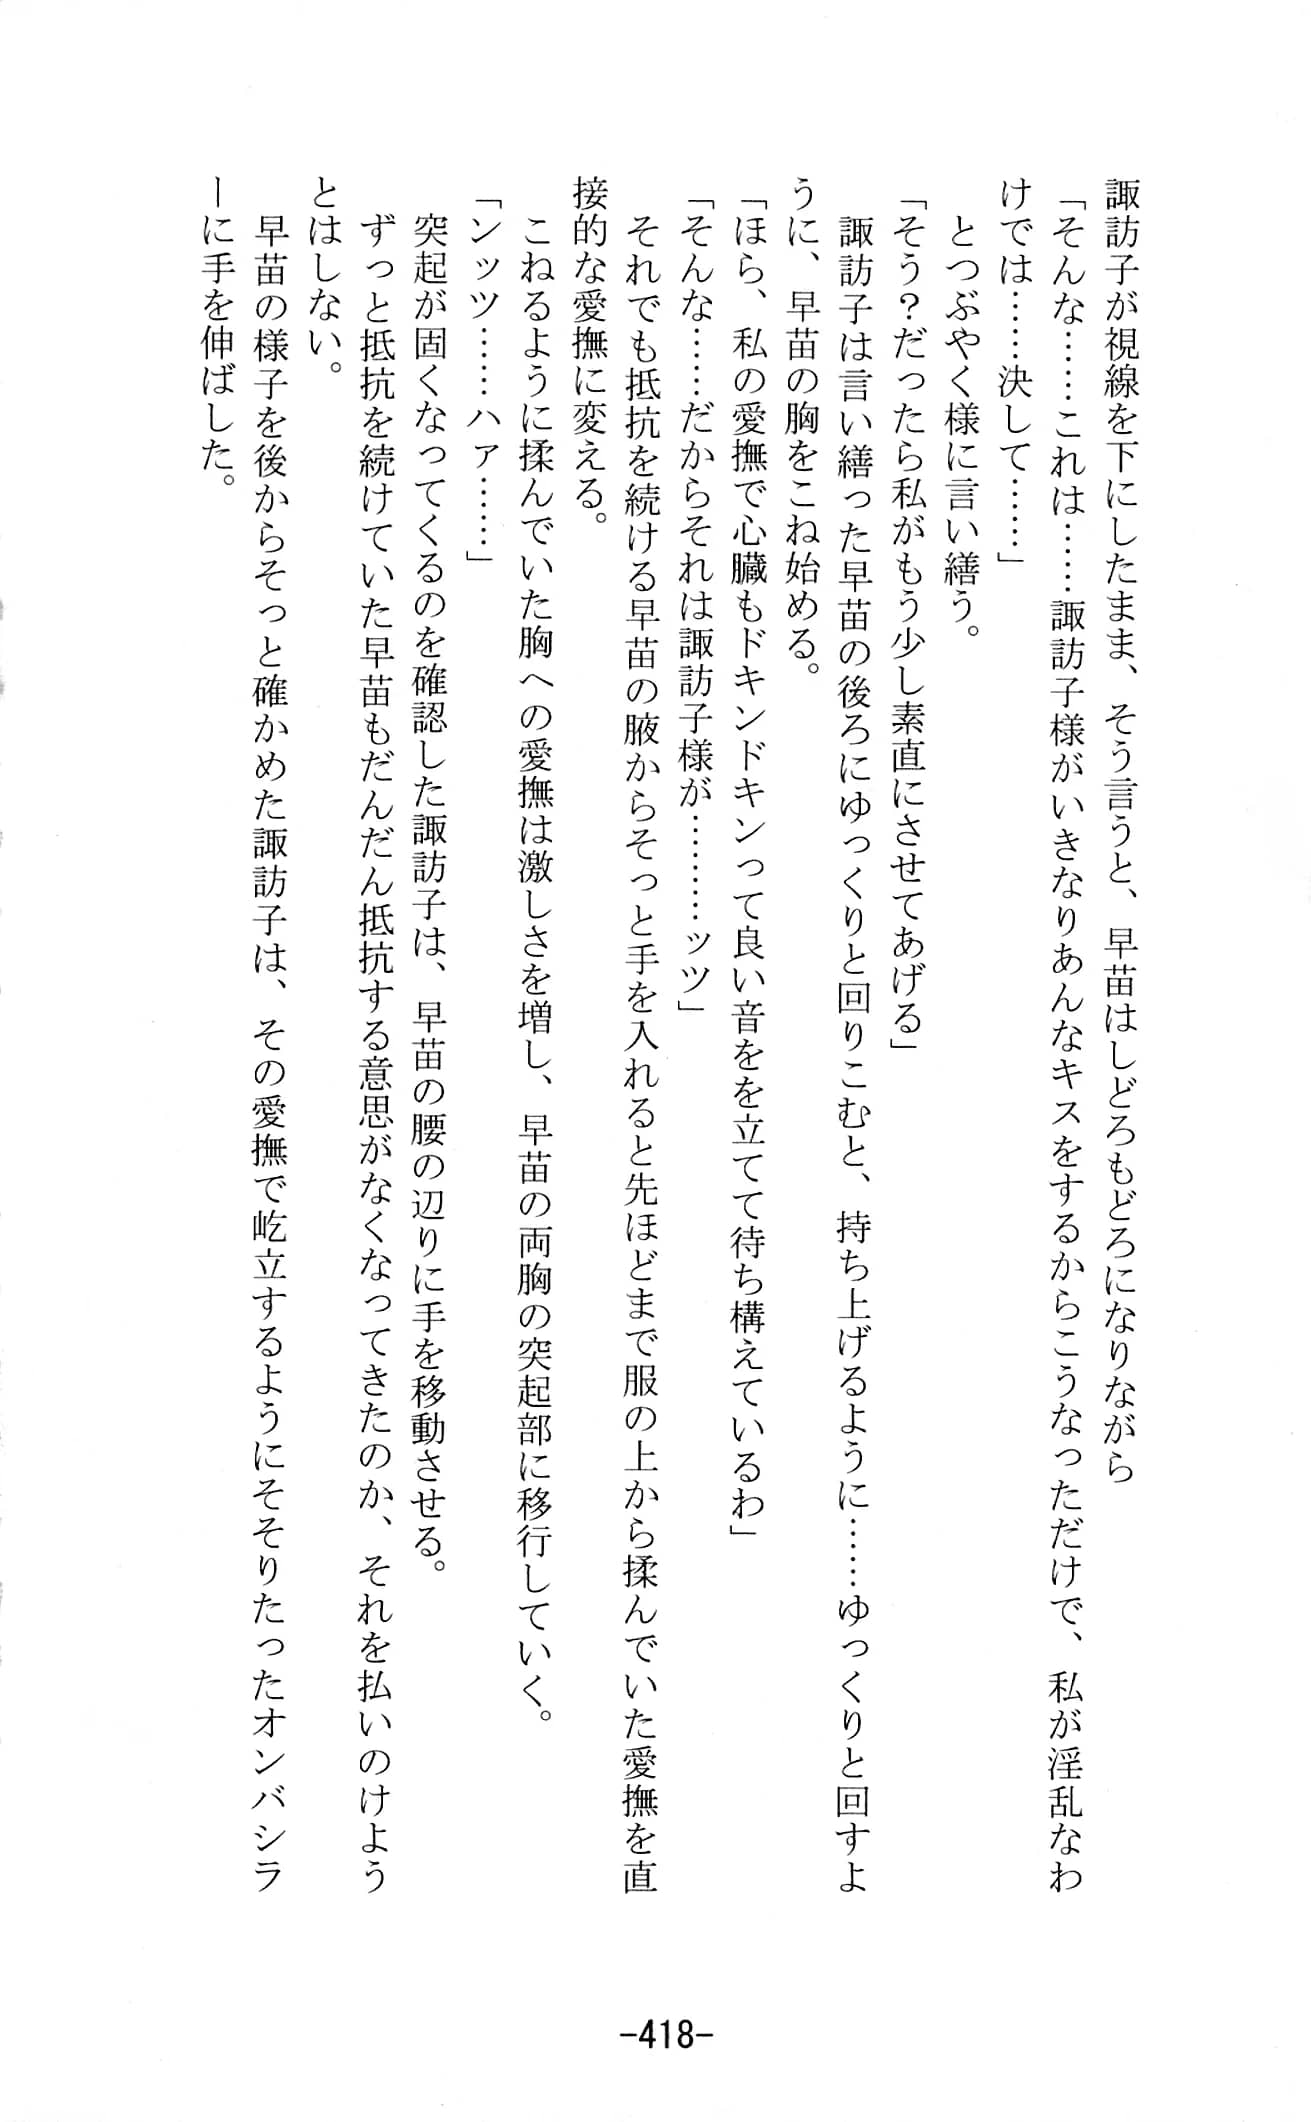 諏訪子が視線を下にしたまま、そう言うと、早苗はしどろもどろになりながら
「そんな……これは……諏訪子様がいきなりあんなキスをするからこうなっただけで、私が淫乱なわ
けでは……決して……」
　とつぶやく様に言い繕う。
「そう？だったら私がもう少し素直にさせてあげる」
　諏訪子は言い繕った早苗の後ろにゆっくりと回りこむと、持ち上げるように……ゆっくりと回すよ
うに、早苗の胸をこね始める。
「ほら、私の愛撫で心臓もドキンドキンって良い音をを立てて待ち構えているわ」
「そんな……だからそれは諏訪子様が………ッツ」
　それでも抵抗を続ける早苗の腋からそっと手を入れると先ほどまで服の上から揉んでいた愛撫を直
接的な愛撫に変える。
　こねるように揉んでいた胸への愛撫は激しさを増し、早苗の両胸の突起部に移行していく。
「ンッツ……ハァ……」
　突起が固くなってくるのを確認した諏訪子は、早苗の腰の辺りに手を移動させる。
　ずっと抵抗を続けていた早苗もだんだん抵抗する意思がなくなってきたのか、それを払いのけよう
とはしない。
　早苗の様子を後からそっと確かめた諏訪子は、その愛撫で屹立するようにそそりたったオンバシラ
ーに手を伸ばした。
-418-